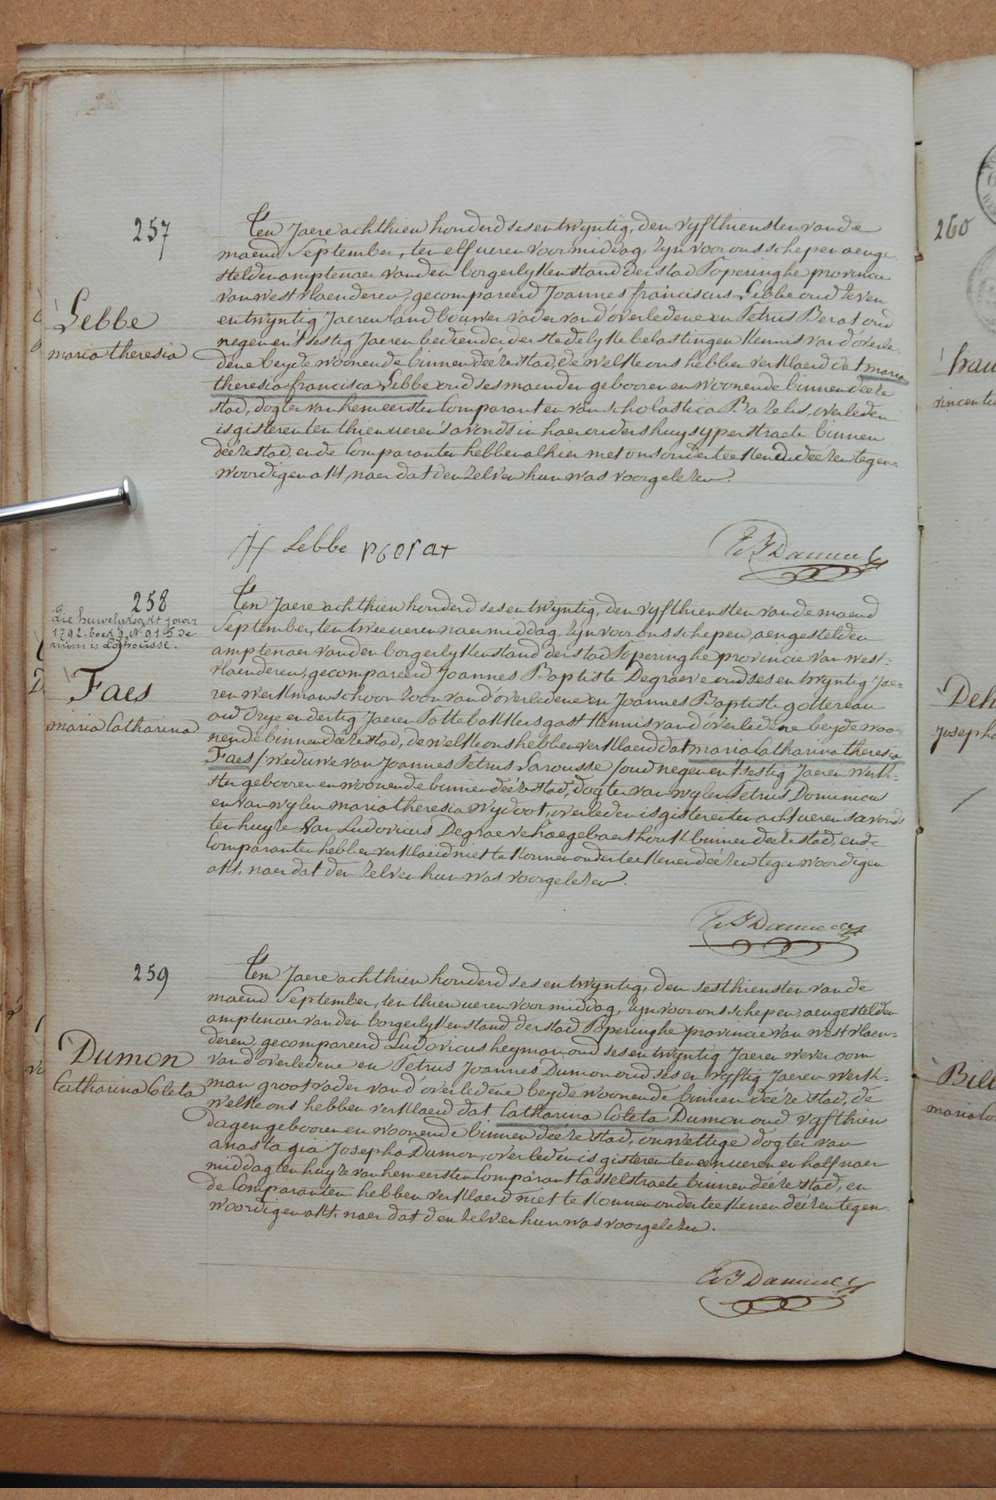 257
Lebbe
maria theresia
Ten Jaere achthien honderd sesentwyntig, den vyfthiensten van de
maend September, ten elf ueren voormiddag, zyn voor ons schepen aenge-
stelden amptenaer van den borgerlyken stand der stad Poperinghe provincie
van westvlaenderen, gecompareerd Joannes franciscus Lebbe oud zeven
en twyntig Jaeren landbouwer vader van d'overledene en Petrus Berat oud
negen en t'sestig Jaeren bediende der stedelyke belastingen kennis van d'overle-
dene beyde woonende binnen deéze stad, de welke ons hebben verklaerd dat maria
theresia francisca Lebbe oud ses maenden gebooren en woonende binnen deéze
stad, dogter van hem eersten Comparant en van scholastica Bazelis, overleden
is gisteren ten thien ueren 's avonds in haer ouders huys yperstraete binnen
deéze stad, en de Comparanten hebben alhier met ons onderteekend deézen tegen-
woordigen akt, naer dat den zelven hun was voorgelezen.
Jf Lebbe pberat
258
Zie huwelyksakt jaer
1792. boek 9. N° 91
Faes
maria Catharina
Ten Jaere achthien honderd sesentwyntig, den vyfthiensten van de maend
September, ten twee ueren naermiddag, zyn voor ons schepen, aengestelden
amptenaer van den borgerlyken stand der stad Poperinghe provincie van west-
vlaenderen, gecompareerd Joannes Baptiste Degraeve oud ses en twyntig Jae-
ren werkman schoonzoon van d'overledene en Joannes Baptiste gottereau
oud drye en dertig Jaeren Pottebakkersgast kennis van d'overledene beyde woo-
nende binnen deéze stad, de welke ons hebben verklaerd dat maria Catharina theresia
Faes / weduwe van Joannes Petrus Larousse / oud negen en t'sestig Jaeren werk-
ster gebooren en woonende binnen deéze stad, dogter van wylen Petrus Dominicus
en van wylen maria theresia Wydoot, overleden is gisteren ten acht ueren s'avonds
ten huyze van Ludovicus Degraeve haegebaerthoek binnen deéze stad, en de
Comparanten hebben verklaerd niet te konnen onderteekenen deézen tegenwoordigen
akt, naer dat den zelven hun was voorgelezen.
259
Dumon
Catharina Coleta
Ten Jaere achthien honderd sesentwyntig, den sesthiensten van de
maend September, ten thien ueren voormiddag, zyn voor ons schepen, aengestelden
amptenaer van den borgerlyken stand der stad Poperinghe provincie van westvlaen-
deren, gecompareerd Ludovicus heyman oud ses en twyntig Jaeren wever oom
van d'overledene en Petrus Joannes Dumon oud ses en vyftig Jaeren werk-
man grootvader van d'overledene beyde woonende binnen deéze stad, de
welke ons hebben verklaerd dat Catharina Coleta Dumon oud vyfthien
dagen gebooren en woonende binnen deéze stad, onwettige dogter van
anastagia Josepha Dumon, overleden is gisteren ten een ueren en half naer
middag ten huyze van hem eersten Comparant Casselstraete binnen deéze stad, en
de Comparanten hebben verklaerd niet te konnen onderteekenen deézen tegen-
woordigen akt, naer dat den zelven hun was voorgelezen.
260